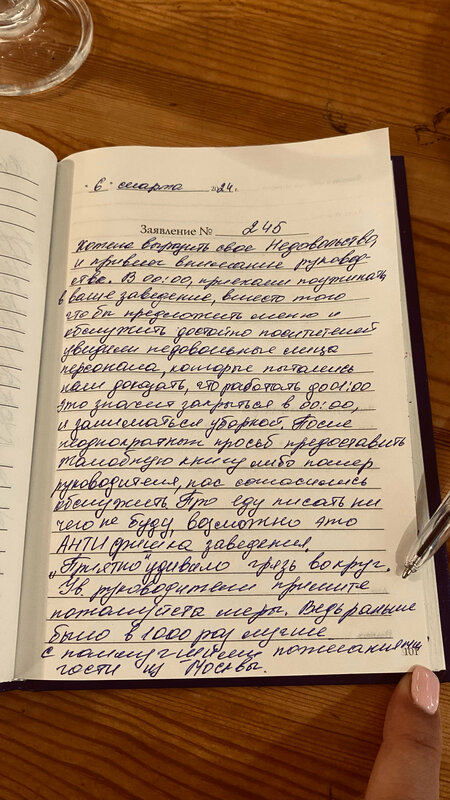 " 6 " марта 2024 г.
Заявление № 245
Хотели выразить свое Недовольство,
и привлечь внимание руковод-
ства. В 00:00, приехали поужинать,
в ваше заведение, вместо того
что бы предложить меню и
обслужить достойно посетителей
увидели недовольные лица
персонала, которые пытались
нам доказать, что работать до 01:00
Это значит закрыться в 00:00,
и заниматься уборкой. После
неоднократных просьб предоставить
жалобную книгу либо номер
руководителя, нас согласились
обслужить. Про еду писать ни
чего не буду, возможно это
АНТИ фишка заведения.
"Приятно" удивило грязь вокруг.
Ув. руководители примите
пожалуйста меры. Ведь раньше
было в 1000 раз лучше
с наилучшими пожеланиями
гости из Москвы.
101